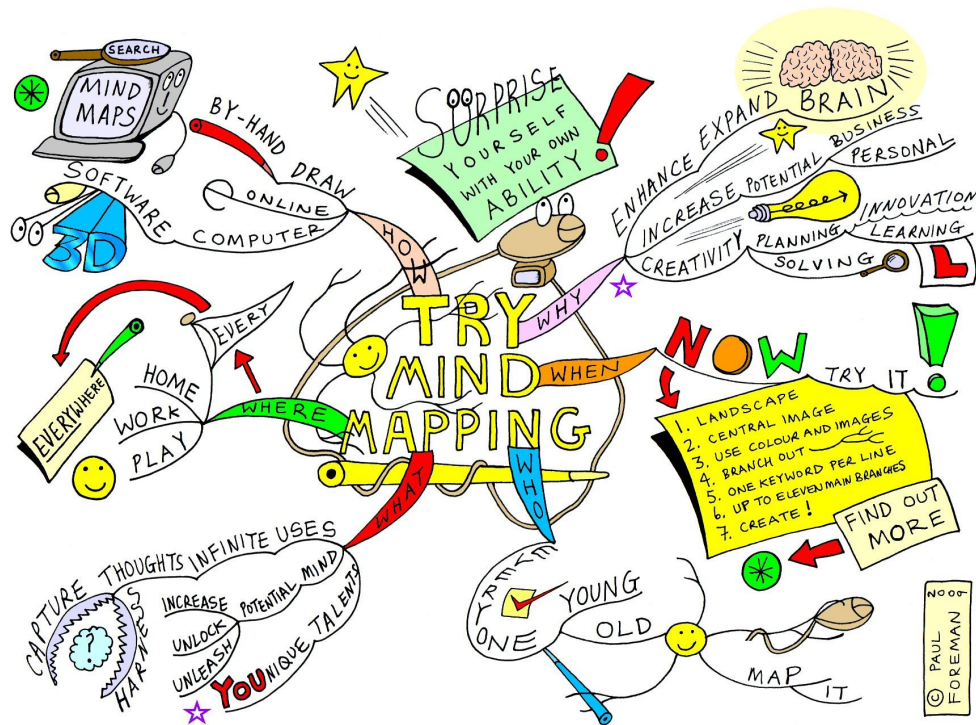 TRY
MIND
MAPPING
HOW
BY-HAND DRAW
ONLINE
COMPUTER
SOFTWARE
3D
SEARCH
MIND
MAPS
SURPRISE
YOURSELF
WITH YOUR OWN
ABILITY!
WHY
ENHANCE EXPAND BRAIN
INCREASE POTENTIAL BUSINESS
PERSONAL
CREATIVITY PLANNING INNOVATION
LEARNING
SOLVING
L
WHEN
NOW
TRY IT!
1. LANDSCAPE
2. CENTRAL IMAGE
3. USE COLOUR AND IMAGES
4. BRANCH OUT
5. ONE KEYWORD PER LINE
6. UP TO ELEVEN MAIN BRANCHES
7. CREATE!
FIND OUT
MORE
WHO
EVERYONE
YOUNG
OLD
MAP
IT
WHAT
INFINITE USES
THOUGHTS
CAPTURE
HARNESS
MIND
POTENTIAL
INCREASE
UNLOCK
UNLEASH
YOUNIQUE TALENTS
WHERE
EVERY
HOME
WORK
PLAY
EVERYWHERE
© PAUL
FOREMAN
2009